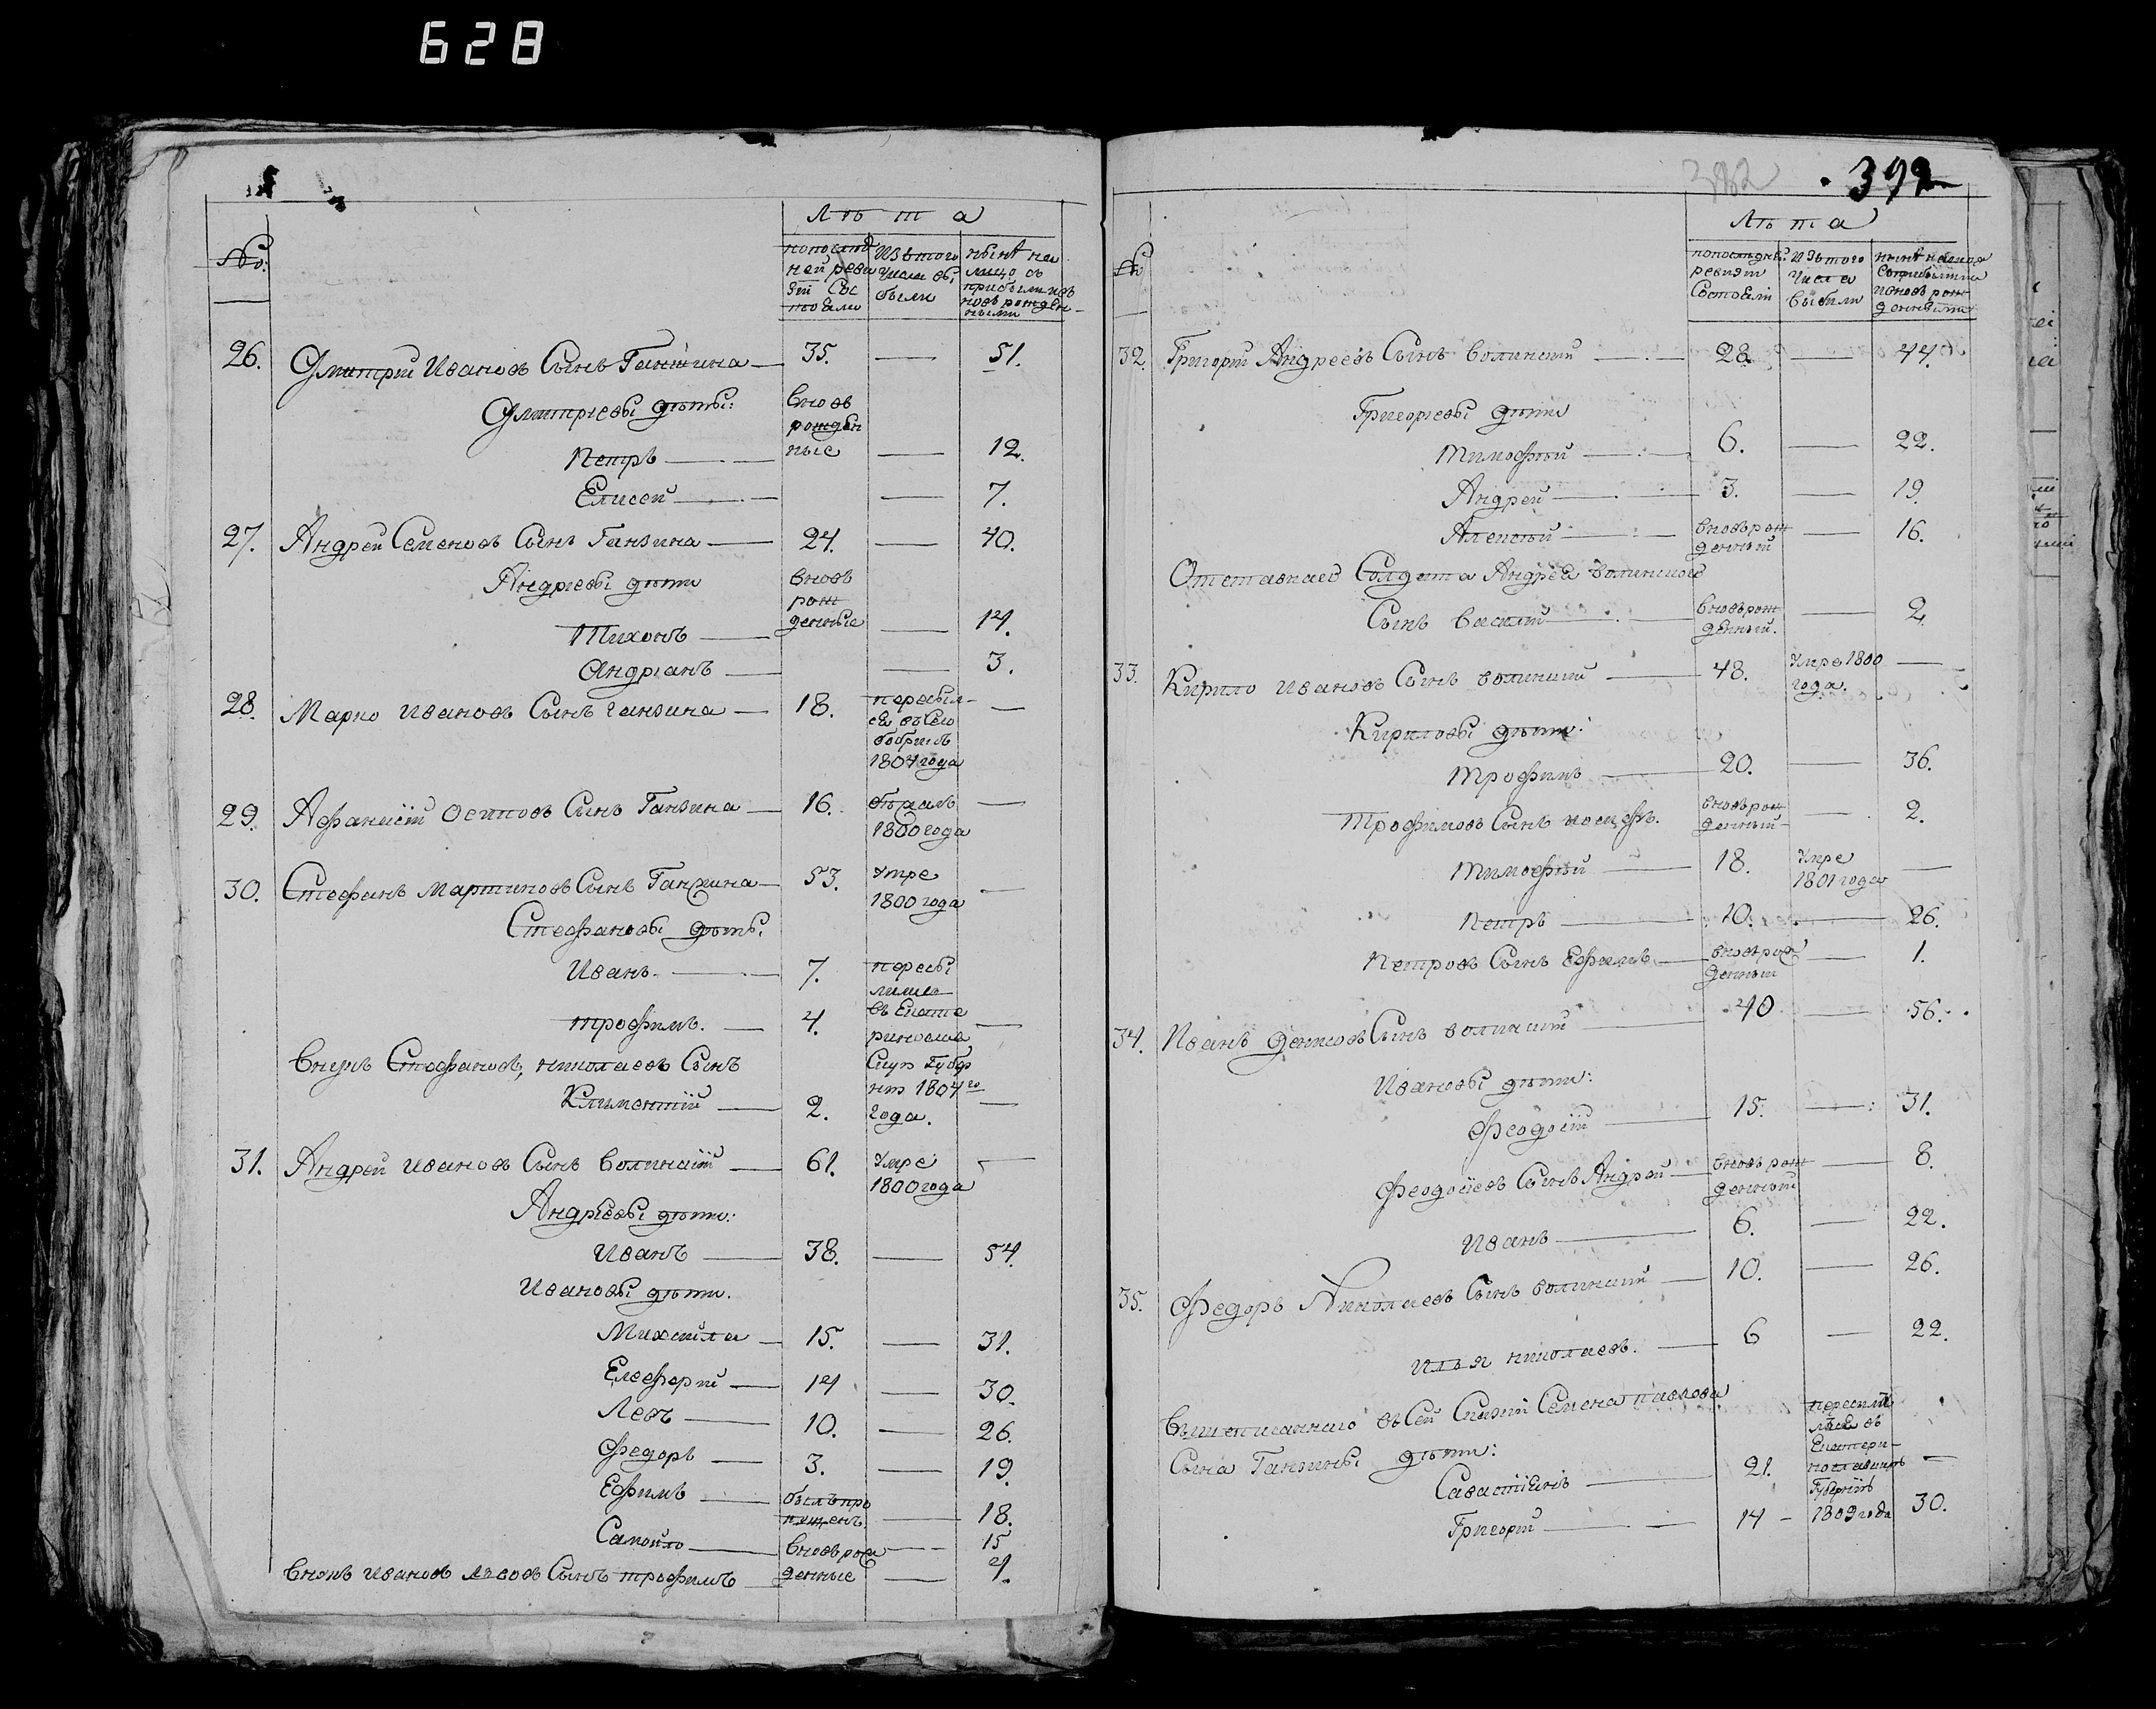 628
Лѣта
№:
попослѣд
ней реви
зіи сос
тояли
Изътого
числа вы
были
нынѣ на
лицо съ
прибылыми
новърожден
ными
26. Дмитрій Ивановъ Сынъ Ганжина — 35. — 51.
Дмитріевы дѣти:
вновь
рожден
ные
Петръ — 12.
Елисей — 7.
27. Андрей Семеновъ Сынъ Ганзина — 24. — 40.
Андріевы дѣти
вновь
рож
денные
Тихонъ — 14.
Андріанъ — 3.
28. Марко Ивановъ Сынъ Ганзина — 18. —
въ Село
бобрикъ
1804 года
29. Афанасій Осиповъ Сынъ Ганзина — 16. —
1800 года
30. Стефанъ Мартиновъ Сынъ Ганжина — 53. умре —
1800 года
Стефановы дѣти:
Иванъ — 7.
Трофимъ. — 4. —
въ Екате
ринослав
Скую Губер
нію 1804го
года.
Внукъ Стефановъ, николаевъ Сынъ
Климентій — 2. —
31. Андрей Ивановъ Сынъ Волинскій — 61. умре —
1800 года
Андріевы дѣти:
Иванъ — 38. — 54.
Ивановы дѣти.
Михайла — 15. — 31.
Елефорій — 14 — 30.
Левъ — 10. — 26.
Федоръ — 3. — 19.
Ефимъ — былъ про — 18.
пущенъ
Самойло — вновь рож — 15
Внукъ Ивановъ Львовъ Сынъ трофимъ — денные — 4.
382
392
Лѣта
№
попослѣдней
ревизіи
состояли
Изътого
числа
выбыли
нынѣ налицо
соприбылыми
иновъ рож
денными
32. Григорій Андреевъ Сынъ Волинскій — 28 — 44.
Григоріевы дѣти
Тимофѣй — 6. — 22.
Андрей — 3. — 19.
Алексѣй — вновърож — 16.
денный
Отставнаго Солдата Андрея Волинскаго
Сынъ Василій — вновърож — 2.
денный.
33. Кирило Ивановъ Сынъ Волинскій — 48. умре 1800 —
года.
Кириловы дѣти:
Трофимъ — 20. — 36.
Трофимовъ Сынъ Иосифъ. вновърож — 2.
денный
Тимофѣй — 18. умре —
1801 года
Петръ — 10. — 26.
Петровъ Сынъ Ефимъ — вновърож — 1.
денный
34. Иванъ Денисовъ Сынъ Волинскій — 40 — 56.
Ивановы дѣти:
Феодосій — 15. — 31.
Феодосіевъ Сынъ Андрей — вновърож — 8.
денный
Иванъ — 6. — 22.
35. Федоръ Николаевъ Сынъ Волинскій — 10. — 26.
Илья николаевъ. — 6 — 22.
Вышеписаннаго въ Сей Сказки Семена павлова
Сына Ганзины дѣти:
Савастіянъ — 21. —
Григорій — 14 — 30.
Екатери
нославскую
Губернію
1809 года